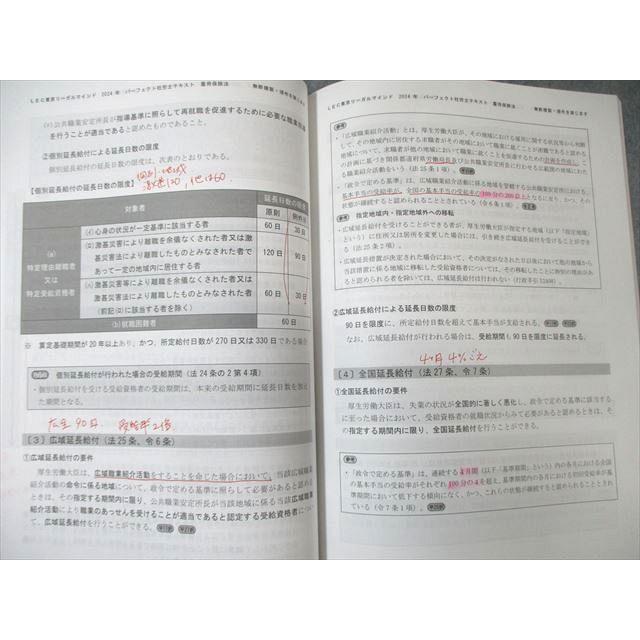 LEC東京リーガルマインド 2024年 パーフェクト社労士テキスト 雇用保険法 無断複製・頒布を禁じます
(ハ)公共職業安定所長が指導基準に照らして再就職を促進するために必要な職業指導
を行うことが適当であると認めたものであること。
②個別延長給付による延長日数の限度
個別延長給付の日数の限度は、次表のとおりである。
【個別延長給付の延長日数の限度】
対象者
延長日数の限度
原則
例外※
(a)
特定理由離職者
又は
特定受給資格者
(イ)心身の状況が一定基準に該当する者
60日
30日
(ロ)激甚災害により離職を余儀なくされた者又は激
甚災害法により離職したものとみなされた者で
あって一定の地域内に居住する者
120日
90日
(ハ)激甚災害等により離職を余儀なくされた者又は
激甚災害法により離職したものとみなされた者
(前記(ロ)に該当する者を除く)
60日
30日
(b)就職困難者
60日
※ 算定基礎期間が20年以上あり、かつ、所定給付日数が270日又は330日である場合
個別延長給付が行われた場合の受給期間(法24条の2第4項)
・個別延長給付を受ける受給資格者の受給期間は、本来の受給期間に延長日数を加え
た期間となる。
広ェ 90日
[3] 広域延長給付(法25条、令6条)
①広域延長給付の要件
厚生労働大臣は、広域職業紹介活動をすることを命じた場合において、当該広域職業
紹介活動の命令に係る地域について、政令で定める基準に照らして必要があると認める
ときは、その指定する期間内に限り、公共職業安定所長が当該地域に係る当該広域職業
紹介活動により職業のあっせんを受けることが適当であると認定する受給資格者につい
て、広域延長給付を行うことができる。
LEC東京リーガルマインド 2024年 パーフェクト社労士テキスト 雇用保険法 無断複製・頒布を禁じます
参考
・「広域職業紹介活動」とは、厚生労働大臣が、その地域における雇用に関する状況等から判断
して、その地域内に居住する求職者がその地域において職業に就くことが困難であると認める
地域について、求職者が他の地域において職業に就くことを促進するための計画を作成し、こ
の計画に基づき関係都道府県労働局長及び公共職業安定所長に行わせる広範囲の地域にわたる
職業紹介活動をいう(法25条1項)。
・「政令で定める基準」は、広域職業紹介活動に係る地域を管轄する公共職業安定所における、
基本手当の受給率が、全国の基本手当の受給率の100分の200以上となるに至り、かつ、その
状態が継続すると認められることとされている(令6条1項)。
参考 指定地域内・指定地域外への移転
・広域延長給付を受けることができる者が、厚生労働大臣が指定する地域(以下「指定地域」
という)に住所又は居所を変更した場合には、引き続き広域延長給付を受けることができ
る(法25条2項)。
・広域延長措置が決定された場合において、その決定がなされた日以後において他の地域から
当該措置に係る地域に移転した受給資格者については、その移転したことに特別の理由があ
ると認められる者を除いては、広域延長給付は行われない(行政手引52409)。
②広域延長給付による延長日数の限度
90日を限度に、所定給付日数を超えて基本手当が支給される。
なお、広域延長給付が行われる場合は、受給期間も90日を限度に延長される。
4ヶ月 4%こえ
[4] 全国延長給付(法27条、令7条)
①全国延長給付の要件
厚生労働大臣は、失業の状況が全国的に著しく悪化し、政令で定める基準に該当する
に至った場合において、受給資格者の就職状況からみて必要があると認めるときは、そ
の指定する期間内に限り、全国延長給付を行うことができる。
参考
・「政令で定める基準」は、連続する4月間(以下「基準期間」という)の各月における全国
の基本手当の受給率がそれぞれ100分の4を超え、基準期間の各月における
準期間において低下する傾向になく、かつ、これらの状態が継続すると認められることとされ
ている(令7条1項)。